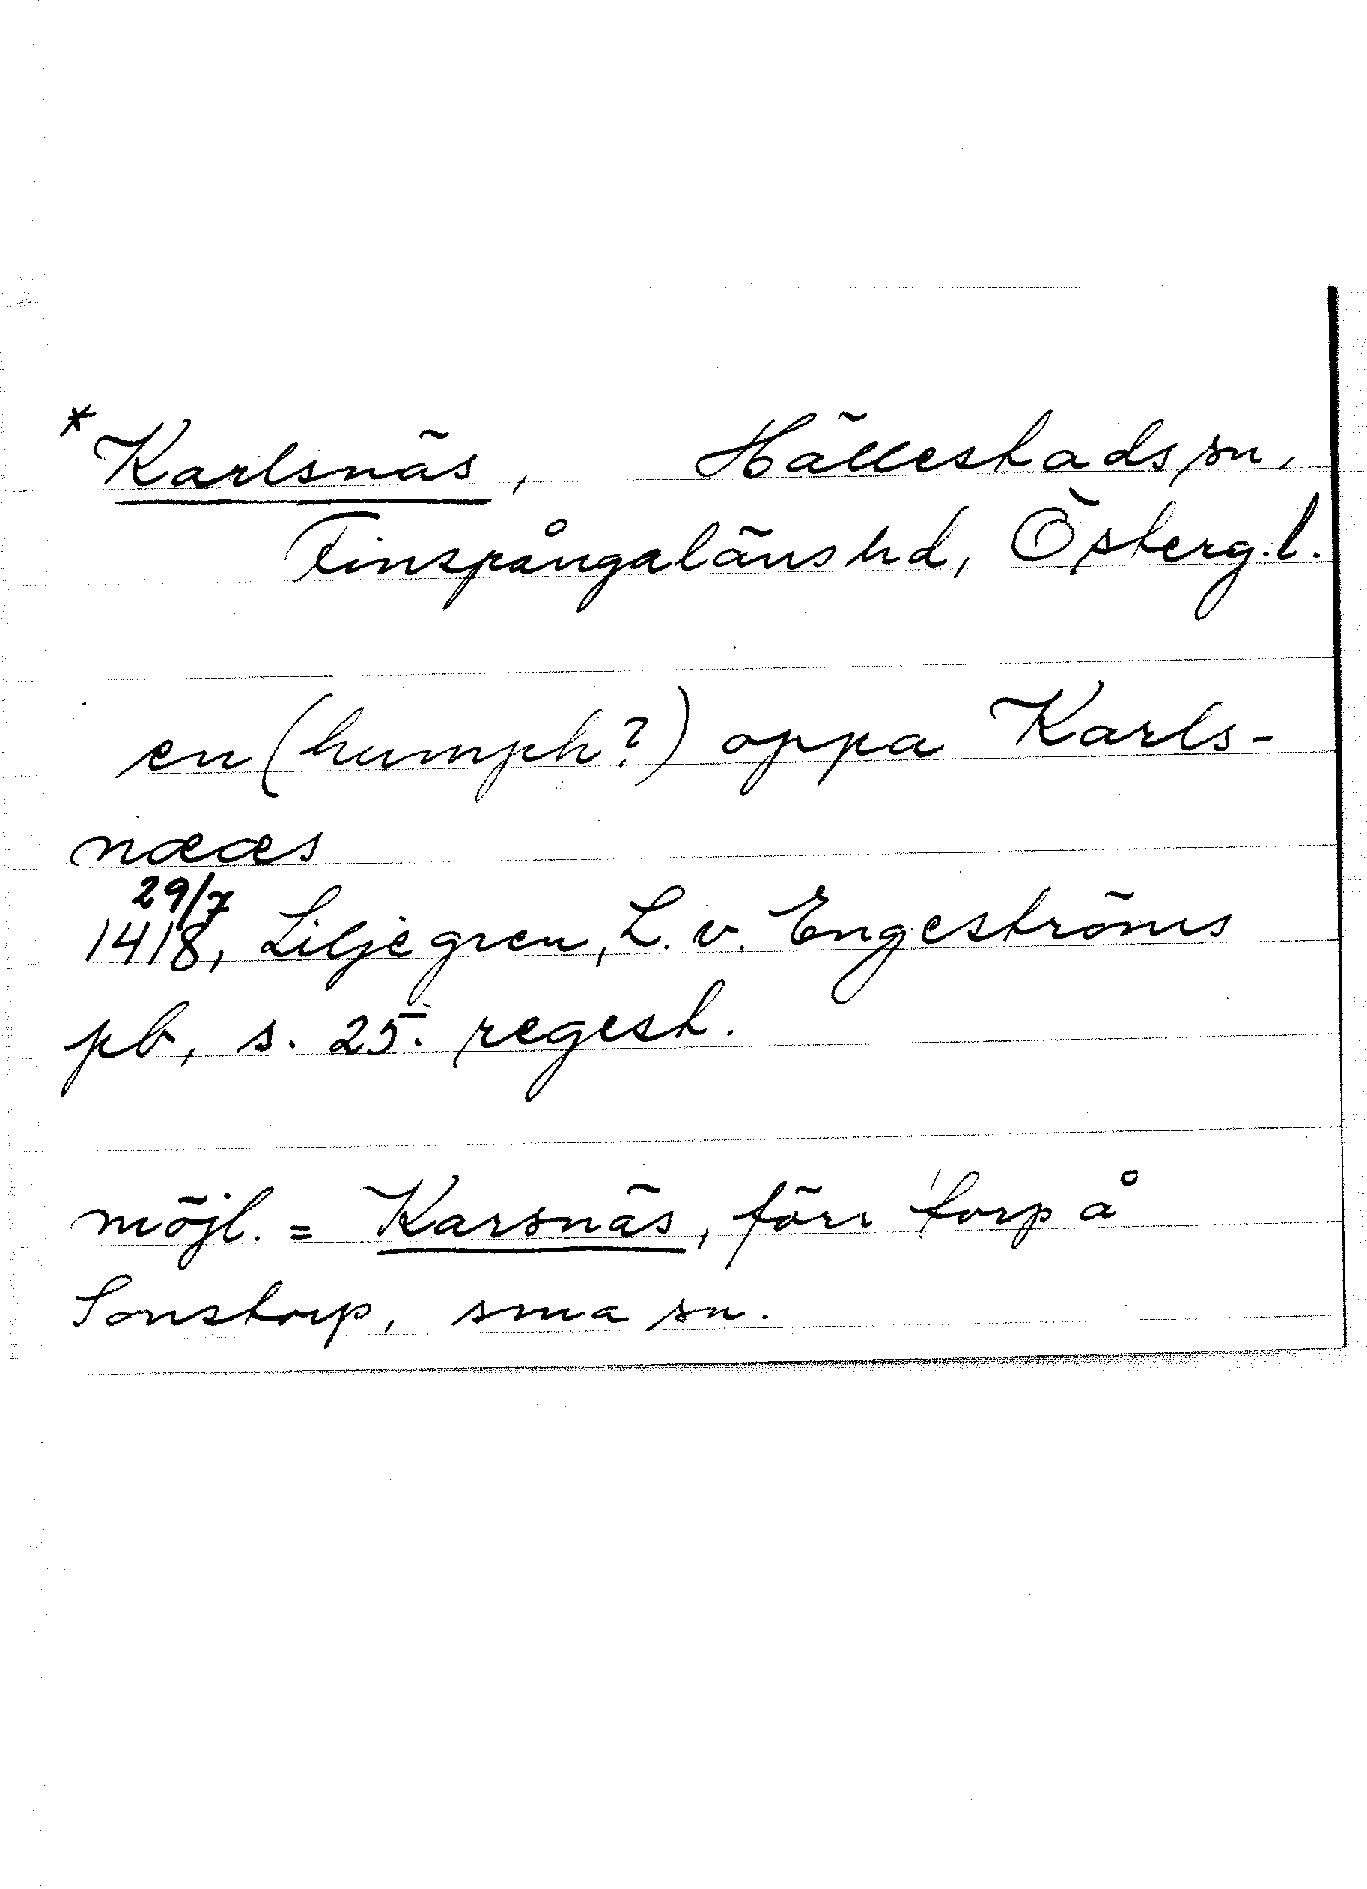 * Karlsnäs, Hällestads sn,
Finspångaläns hd, Österg.l.
en (humph?) oppa Karls-
nææs
29/7
1418, Liljegren, L. v. Engeströms
pb, s. 25. regest.
möjl. = Karsnäs, förr torp å
Sonstorp, sma sn.